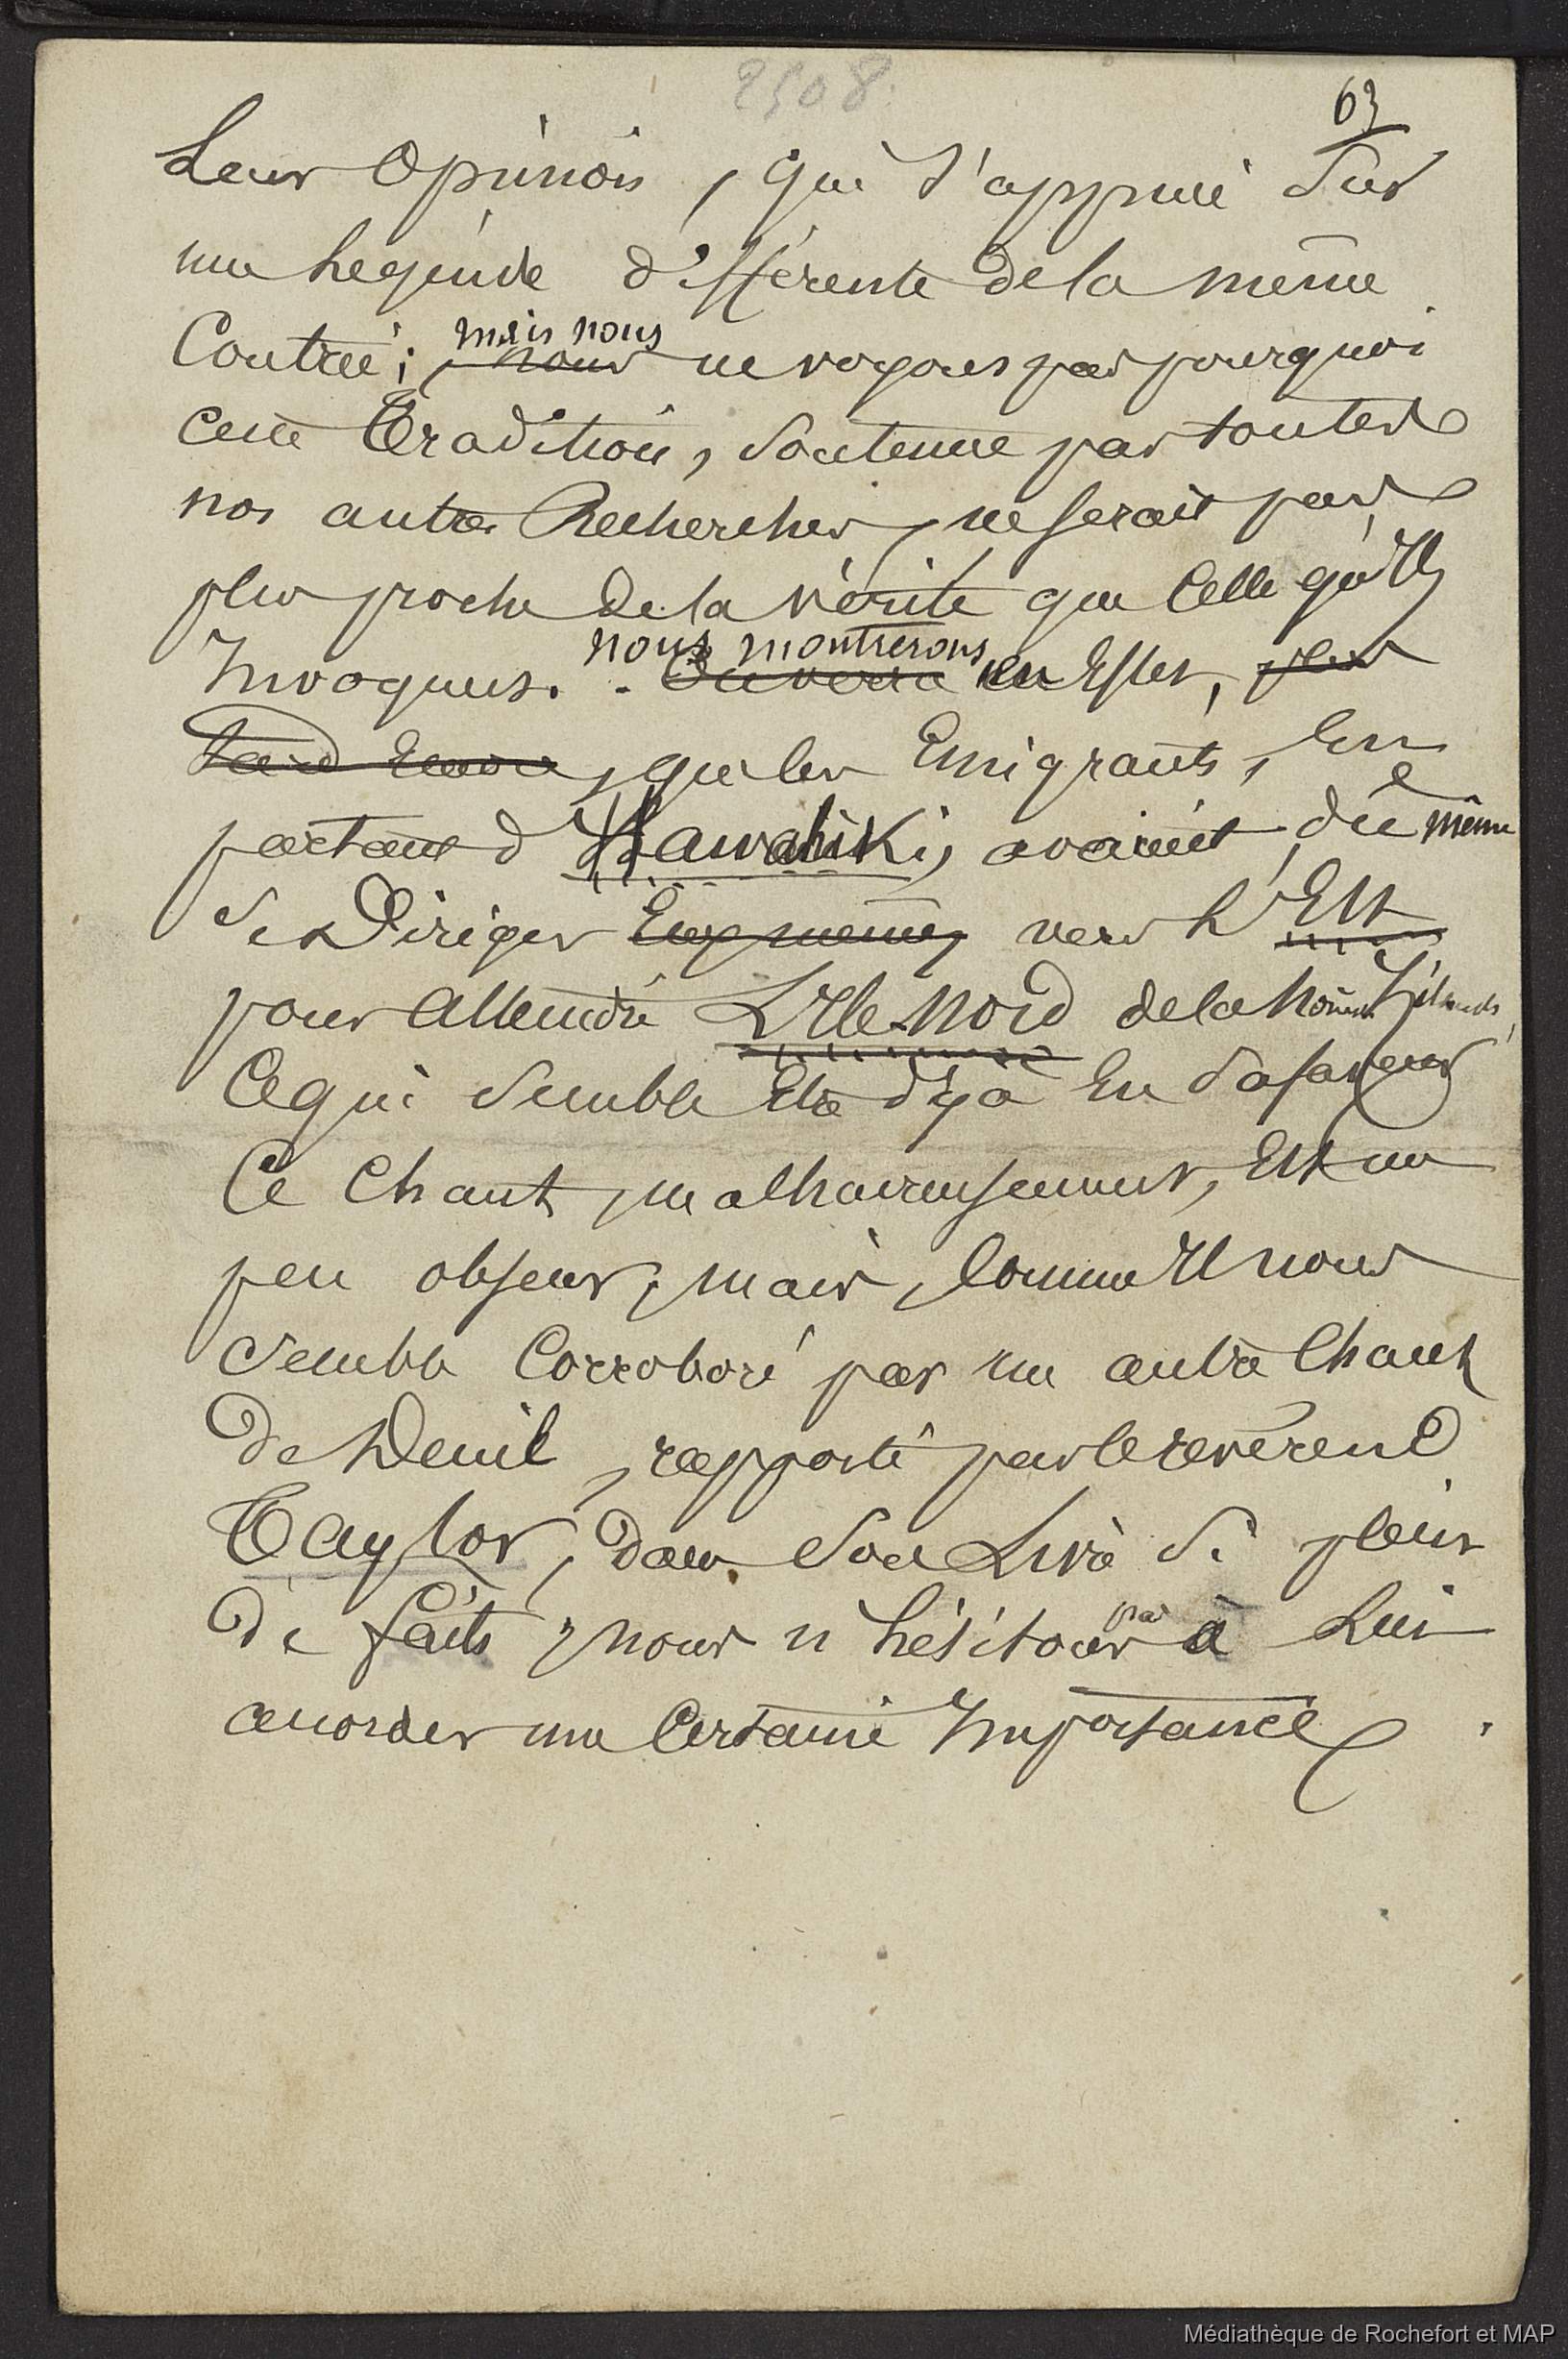 2508.
63
Leur Opinion, qui s'appuie sur
une Légende différente de la même
Contrée; mais nous ne voyons pas pourquoi
cette Tradition, soutenue par toutes
nos autres Recherches, ne serait pas
plus proche de la Vérité que Celle qu'Ils
Invoquent. nous montrerons en Effet, plus
tard, que les Emigrants, En
partant d'Hawahiki, avaient dû même
se Diriger Eux mêmes vers L'Est
pour Atteindre L'Ile-Nord de la Nouv. Zélande,
Ce qui semble Etre déjà En sa faveur
Ce Chant, malheureusement, Est un
peu obscur, mais, Comme Il nous
semble Corroboré par un autre Chant
de Deuil, rapporté par le révérend
Taylor, dans son Livre si plein
de faits, nous n'hésitons pas à Lui
accorder une Certaine Importance.
Médiathèque de Rochefort et MAP